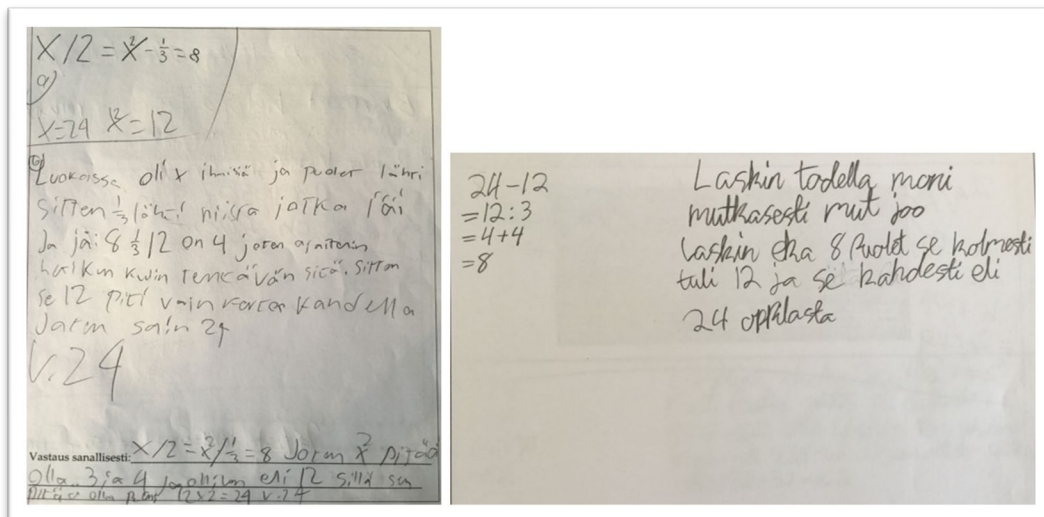 X/2 = x² - 1/3 = 8
a)
x=24 x² = 12
Luokassa oli x ihmisiä ja puolet lähti
Sitten 1/3 lähti niistä jotka jäi
Ja jäi 8 1/3 12 on 4 joten
se 12 piti vain kertoa kahdella
Joten sain 24
V. 24
Vastaus sanallisesti: X/2 = x²/ 1/3 = 8 Joten x² pitää
olla 3 ja 4 jaollinen eli 12 sillä sen
pitää olla 12x2=24 V.24
24-12
=12:3
=4+4
=8
Laskin todella moni
mutkasesti mut joo
Laskin eka 8 Puolet se kolmesti
tuli 12 ja se kahdesti eli
24 oppilasta